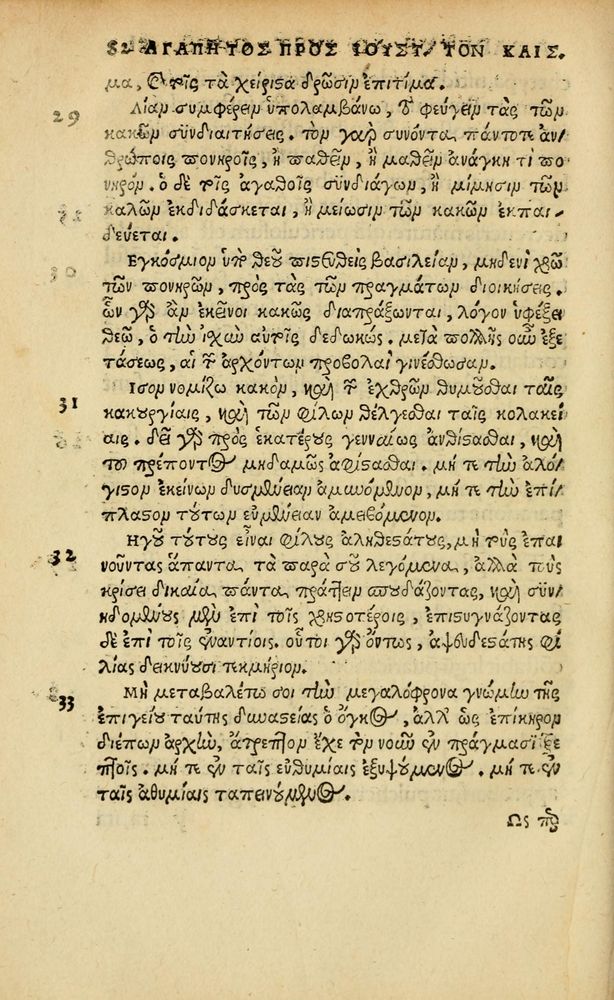 82 ΑΓΑΠΗΤΟΣ ΠΡΟΣ ΙΟΥΣΤ. ΤΟΝ ΚΑΙΣ.
μα, καὶ τοῖς τὰ χείριστα δρῶσιν ἐπιτίμα.
29 Λίαν συμφέρειν ὑπολαμβάνω, τὸ φεύγειν τὰς τῶν
κακῶν συνδιαιτήσεις. τὸν γὰρ συνόντα πάντοτε ἀν/
θρώποις πονηροῖς, ἢ παθεῖν, ἢ μαθεῖν ἀνάγκη τι πο
νηρόν. ὁ δὲ τοῖς ἀγαθοῖς συνδιάγων, ἢ μίμησιν τῶν
καλῶν ἐκδιδάσκεται, ἢ μείωσιν τῶν κακῶν ἐκπαι/
δεύεται.
30 Εγκόσμιον ὑπὸ θεοῦ πιστευθεὶς βασιλείαν, μηδενὶ χρῶ
τῶν πονηρῶν, πρὸς τὰς τῶν πραγμάτων διοικήσεις.
ὧν γὰρ ἂν ἐκεῖνοι κακῶς διαπράξωνται, λόγον ὑφέξει
θεῷ, ὁ τὴν ἰχὺν αὐτοῖς δεδωκώς. μετὰ πολλῆς οὖν ἐξε
τάσεως, αἱ τῶν ἀρχόντων προβολαὶ γινέσθωσαν.
31 Ισον νομίζω κακὸν, καὶ τὸ ἐχθρῶν θυμοῦσθαι ταῖς
κακουργίαις, καὶ τῶν φίλων θέλγεσθαι ταῖς κολακεί
αις. δεῖ γὰρ πρὸς ἑκατέρους γενναίως ἀνθίστασθαι, καὶ
τοῦ πρέποντος μηδαμῶς ἀφίστασθαι. μή τε τὴν ἀλό/
γιστον ἐκείνων δυσμένειαν ἀμυνόμενον, μή τε τὴν ἐπί/
πλαστον τούτων εὐμένειαν ἀμειβόμενον.
32 Ηγοῦ τούτους εἶναι φίλους ἀληθεστάτους, μὴ τοὺς ἐπαι
νοῦντας ἅπαντα τὰ παρὰ σοῦ λεγόμενα, ἀλλὰ τοὺς
κρίσει δικαίᾳ πάντα πράττειν σπουδάζοντας, καὶ συν/
ηδομένους μὲν ἐπὶ τοῖς χρηστοτέροις, ἐπιστυγνάζοντας
δὲ ἐπὶ τοῖς ἐναντίοις. οὗτοι γὰρ ὄντως, ἀψευδεστάτης φι
λίας δεικνύουσι τεκμήριον.
33 Μὴ μεταβαλέτω σοι τὴν μεγαλόφρονα γνώμην τῆς
ἐπιγείου ταύτης δυναστείας ὁ ὄγκος, ἀλλ᾽ ὡς ἐπίκηρον
διέπων ἀρχὴν, ἄτρεπτον ἔχε τὸν νοῦν ἐν πράγμασι τρε
πτοῖς. μή τε ἐν ταῖς εὐθυμίαις ἐξυψούμενος. μή τε ἐν
ταῖς ἀθυμίαις ταπεινούμενος.
Ως πρ